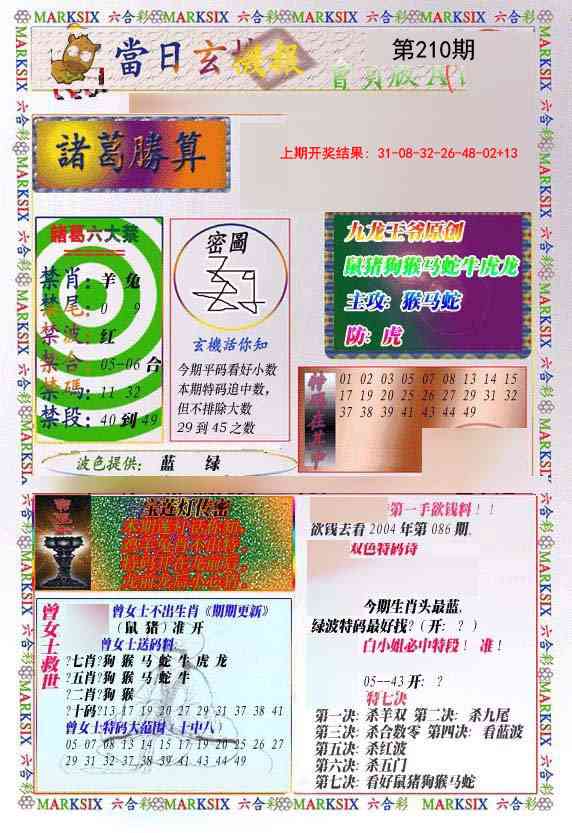 MARKSIX 六合彩 MARKSIX 六合彩 MARKSIX 六合彩 MARKSIX 六合彩
當日玄機報
第210期
諸葛勝算
上期开奖结果: 31-08-32-26-48-02+13
諸葛六大禁
禁肖: 羊 兔
禁尾: 0 9
禁波: 红
禁合: 05-06 合
禁碼: 11 32
禁段: 40 到 49
密圖
玄機活你知
今期平码看好小数
本期特码追中数,
但不排除大数
29 到 45 之数
九龙王爷原创
鼠猪狗猴马蛇牛虎龙
主攻: 猴马蛇
防: 虎
特碼在其中
01 02 03 05 07 08 13 14 15
17 19 20 25 26 27 29 31 32
37 38 39 41 43 44 49
波色提供: 蓝 绿
宝莲灯传密
第一手欲钱料!!
欲钱去看 2004 年第 086 期.
双色特码诗
今期生肖头最蓝.
绿波特码最好找?(开: ?)
白小姐必中特段! 准!
05--43 开: ?
特七决
第一决: 杀羊双 第二决: 杀九尾
第三决: 杀合数零 第四决: 看蓝波
第五决: 杀红波
第六决: 杀五门
第七决: 看好鼠猪狗猴马蛇
曾女士救世
曾女士不出生肖《期期更新》
(鼠 猪) 准 开
曾女士送码料:
?七肖?狗 猴 马 蛇 牛 虎 龙
?五肖?狗 猴 马 蛇 牛
?二肖?狗 猴
?十码?13 17 19 20 27 29 31 37 38 41
曾女士特码大范围〖十中八〗
05 07 08 13 14 15 17 19 20 25 26 27
29 31 32 37 38 39 41 43 44 49
MARKSIX 六合彩 MARKSIX 六合彩 MARKSIX 六合彩 MARKSIX 六合彩